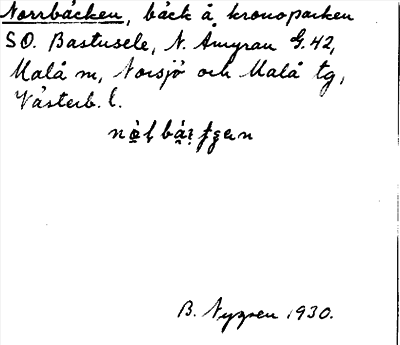 Norrbäcken, bäck å kronoparken
SO. Bastusele, N. Åmyran G. 42,
Malå sn, Norsjö och Malå tg,
Västerb. l.
B. Nygren 1930.